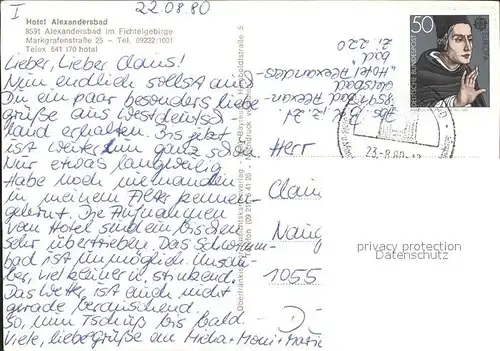 I
22.08.80
Hotel Alexandersbad
8591 Alexandersbad im Fichtelgebirge
Markgrafenstraße 25 — Tel. 09232/1031
Telex 641 170 hotel
Lieber, Lieber Claus!
Nun endlich sollst auch
Du ein paar besonders liebe
Grüße aus Westdeutsch
land erhalten. Bis jetzt
ist weiterhin ganz schön
Nur etwas langweilig
Habe noch niemanden
in meinem Alter kennen-
gelernt. Die Aufnahmen
vom Hotel sind ein bisschen
sehr übertrieben. Das Schwimm-
bad ist unmöglich. Unsau-
ber, viel kleiner u. stinkend.
Das Wetter ist auch nicht
gerade berauschend.
So, nun Tschüß bis bald.
Viele, liebe Grüße an Micha+Moni+
z. Zt.
8591 Bad Alexan-
dersbad
"Hotel Alexanders-
bad"
Z. 220
50
DEUTSCHE BUNDESPOST
CEPT
23.-8.80
Herr
Claus
1055
D-
privacy protection
Datenschutz